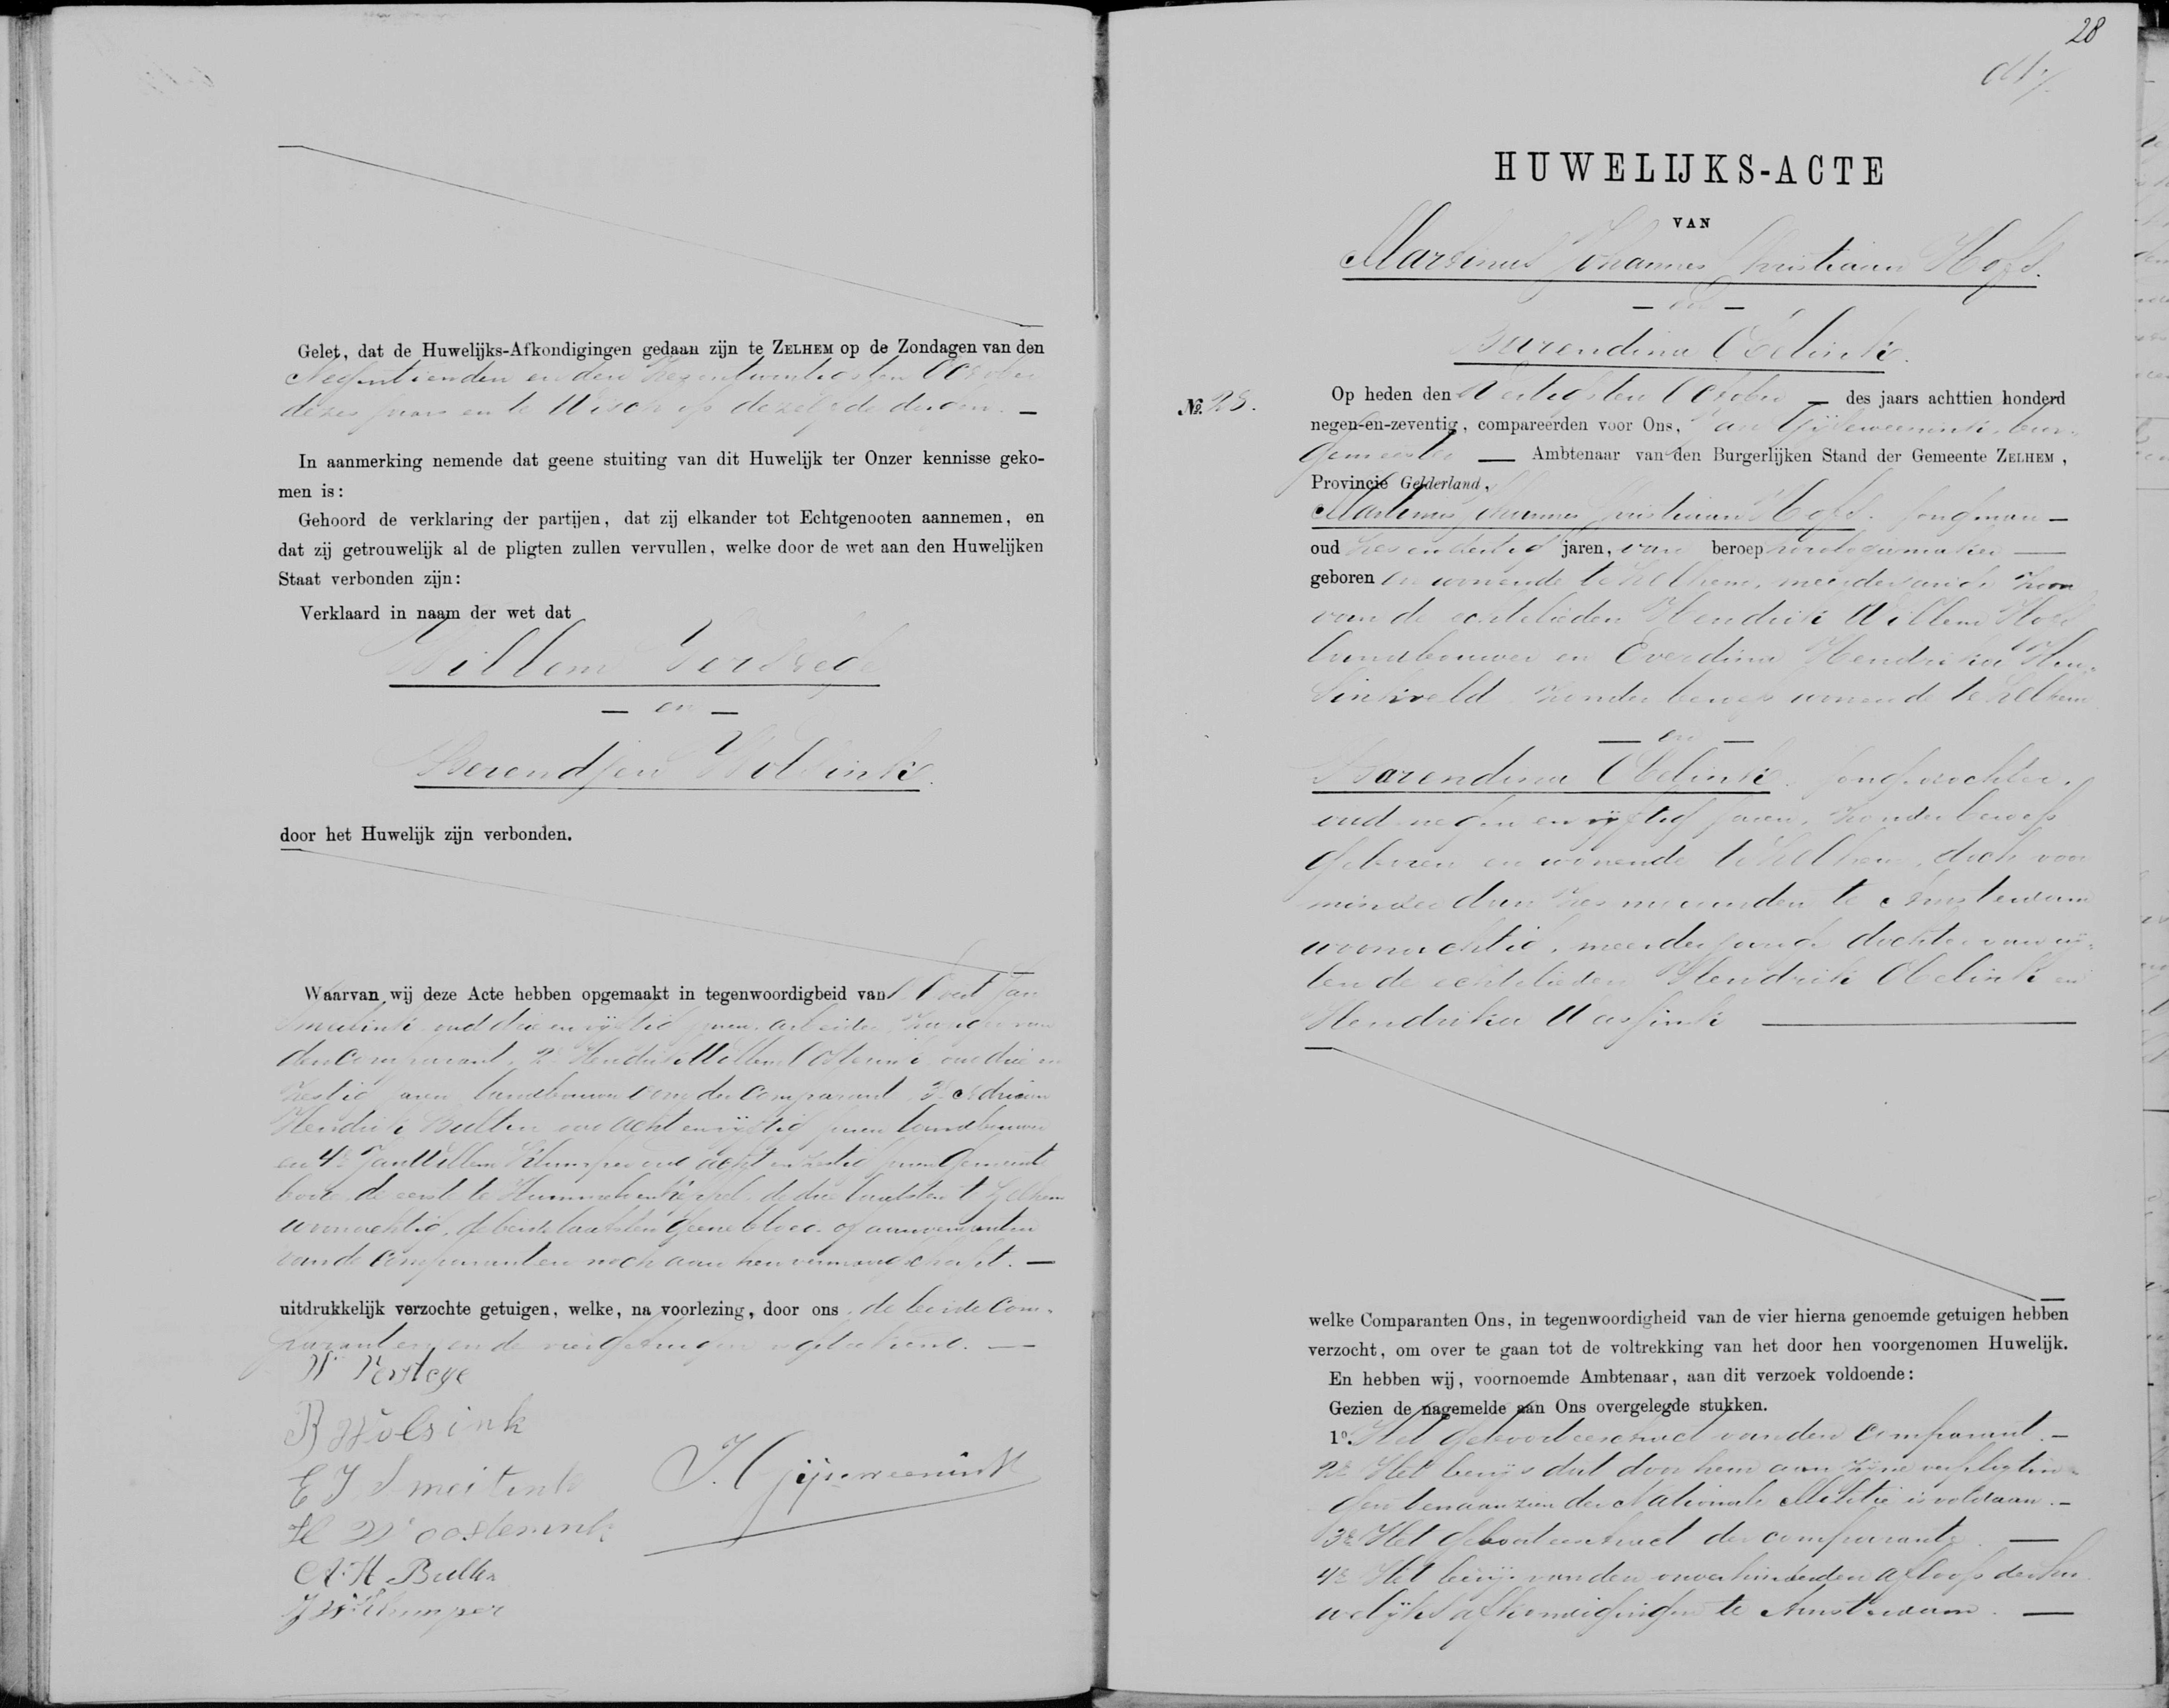 Gelet, dat de Huwelijks-Afkondigingen gedaan zijn te ZELHEM op de Zondagen van den
Negentienden en den Zesentwintigsten October
dezes jaars en te Wisch op dezelfde dagen. —
In aanmerking nemende dat geene stuiting van dit Huwelijk ter Onzer kennisse geko-
men is:
Gehoord de verklaring der partijen, dat zij elkander tot Echtgenooten aannemen, en
dat zij getrouwelijk al de pligten zullen vervullen, welke door de wet aan den Huwelijken
Staat verbonden zijn:
Verklaard in naam der wet dat
Willem Verstege
— en —
Berendjen Wolsink.
door het Huwelijk zijn verbonden.
Waarvan wij deze Acte hebben opgemaakt in tegenwoordigheid van 1e Evert Jan
Smeitink oud drie en vijftig jaren, arbeider, van
den comparant, 2e Hendrik Willem Oosterink oud drie en
zestig jaren landbouwer oom der comparant 3e Adriaan
Hendrik Bulten oud acht en vijftig jaren landbouwer
en 4e Jan Willem Klumper oud acht en zestig jaren Gemeente
bode, de eerste te Hummelo en Keppel, de drie laatsten te Zelhem
woonachtig, de beide laatsten geene bloed- of aanverwanten
van de comparanten noch aan hen vermaagschapt. —
uitdrukkelijk verzochte getuigen, welke, na voorlezing, door ons, de beide Com-
paranten en de vier getuigen is geteekend. —
W Verstege
B Wolsink
E J Smeitink
J. Gijsweenink
H W oosterink
A. H Bulten
J W Klumper
28
HUWELIJKS-ACTE
VAN
Martinus Johannes Christiaan Hofs.
— en —
Barendina Obelink.
№ 28.
Op heden den dertigsten October — des jaars achttien honderd
negen-en-zeventig, compareerden voor Ons, Jan Gijsweenink, bur-
gemeester — Ambtenaar van den Burgerlijken Stand der Gemeente ZELHEM,
Provincie Gelderland,
Martinus Johannes Christiaan Hofs. jongman —
oud zes en dertig jaren, van beroep horologiemaker —
geboren en wonende te Zelhem, meerderjarige zoon
van de echtelieden Hendrik Willem Hofs
landbouwer en Everdina Hendrika
zonder beroep wonende te Zelhem
— en —
Barendina Obelink. jongedochter,
oud negen en vijftig jaren, zonder beroep
geboren en wonende te Zelhem, doch voor
minder dan zes maanden te Amsterdam
woonachtig, meerderjarige dochter van wij-
len de echtelieden Hendrik Obelink en
Hendrika Wassink —
welke Comparanten Ons, in tegenwoordigheid van de vier hierna genoemde getuigen hebben
verzocht, om over te gaan tot de voltrekking van het door hen voorgenomen Huwelijk.
En hebben wij, voornoemde Ambtenaar, aan dit verzoek voldoende:
Gezien de nagemelde aan Ons overgelegde stukken.
1o. Het geboorteextract van den comparant. —
2e Het bewijs dat door hem aan zijne verpligtin-
gen ten aanzien der Nationale Militie is voldaan. —
3e Het geboorteextract der comparante. —
4e Het bewijs van den onverhinderden afloop der hu-
welijks afkondigingen te Amsterdam. —